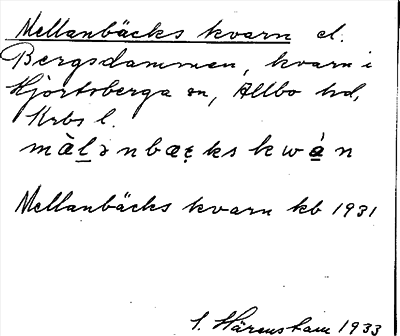 Mellanbäcks kvarn el.
Bergsdammen, kvarn i
Hjortsberga sn, Allbo hd,
Krbs l.
màlənbæks kwán
Mellanbäcks kvarn kb 1931
S. Härenstam 1933